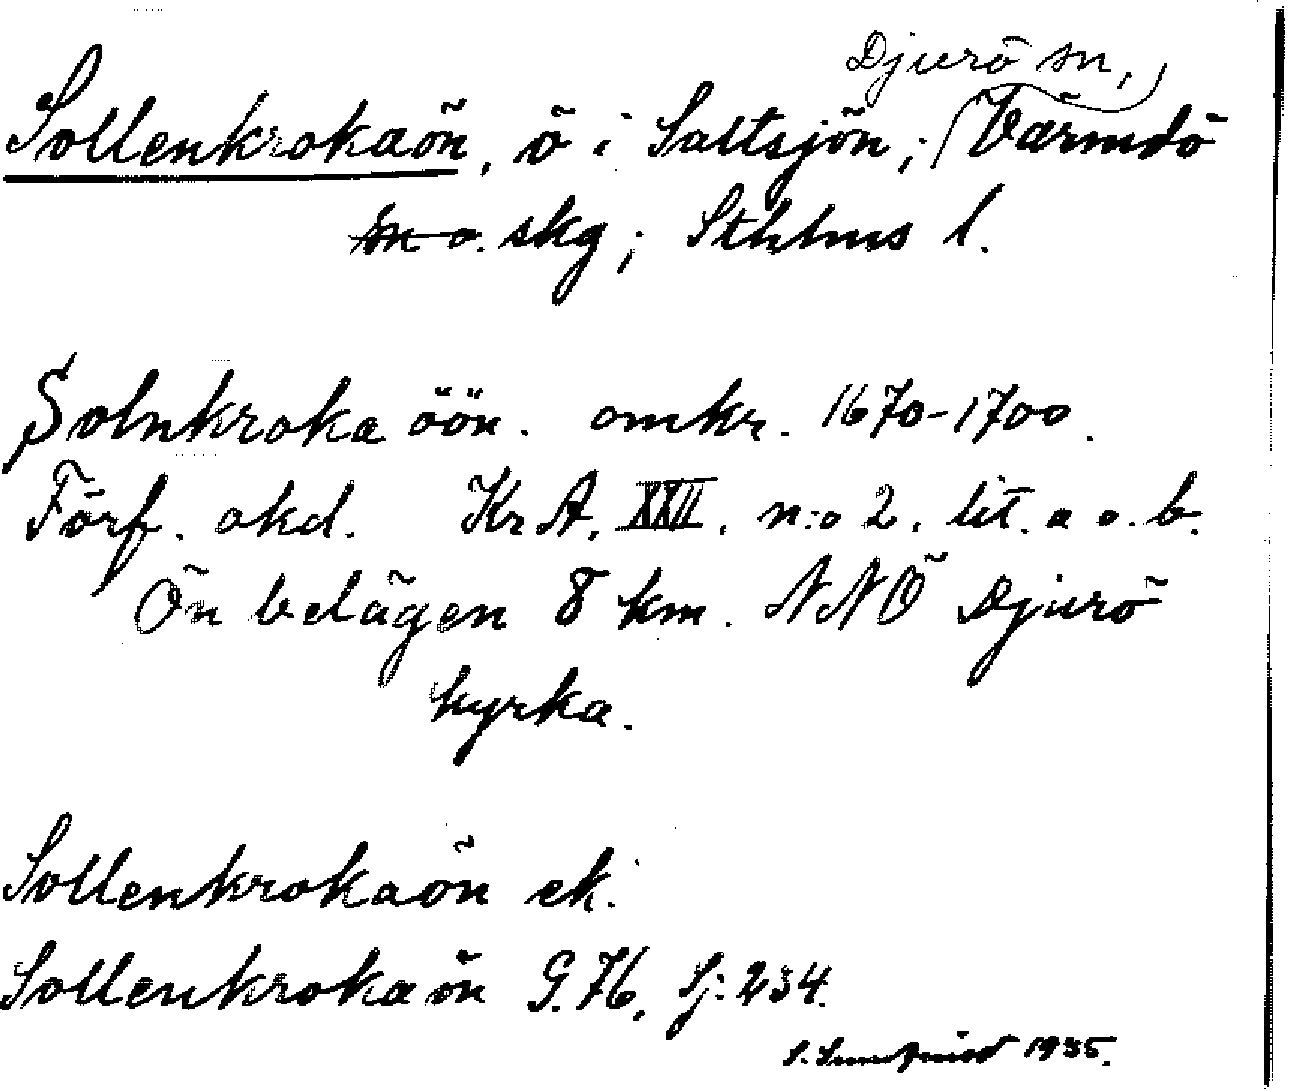 Djurö sn,
Sollenkrokaön, ö i Saltsjön; Värmdö
sn o. skg; Sthlms l.
Solnkroka öön. omkr. 1670-1700.
Förf. okd. Kr A, XXII, n:o 2, lit. a o. b.
Ön belägen 8 km. NNÖ Djurö
kyrka.
Sollenkrokaön ek.
Sollenkrokaön G. 76, Sj: 234.
S. 1935.